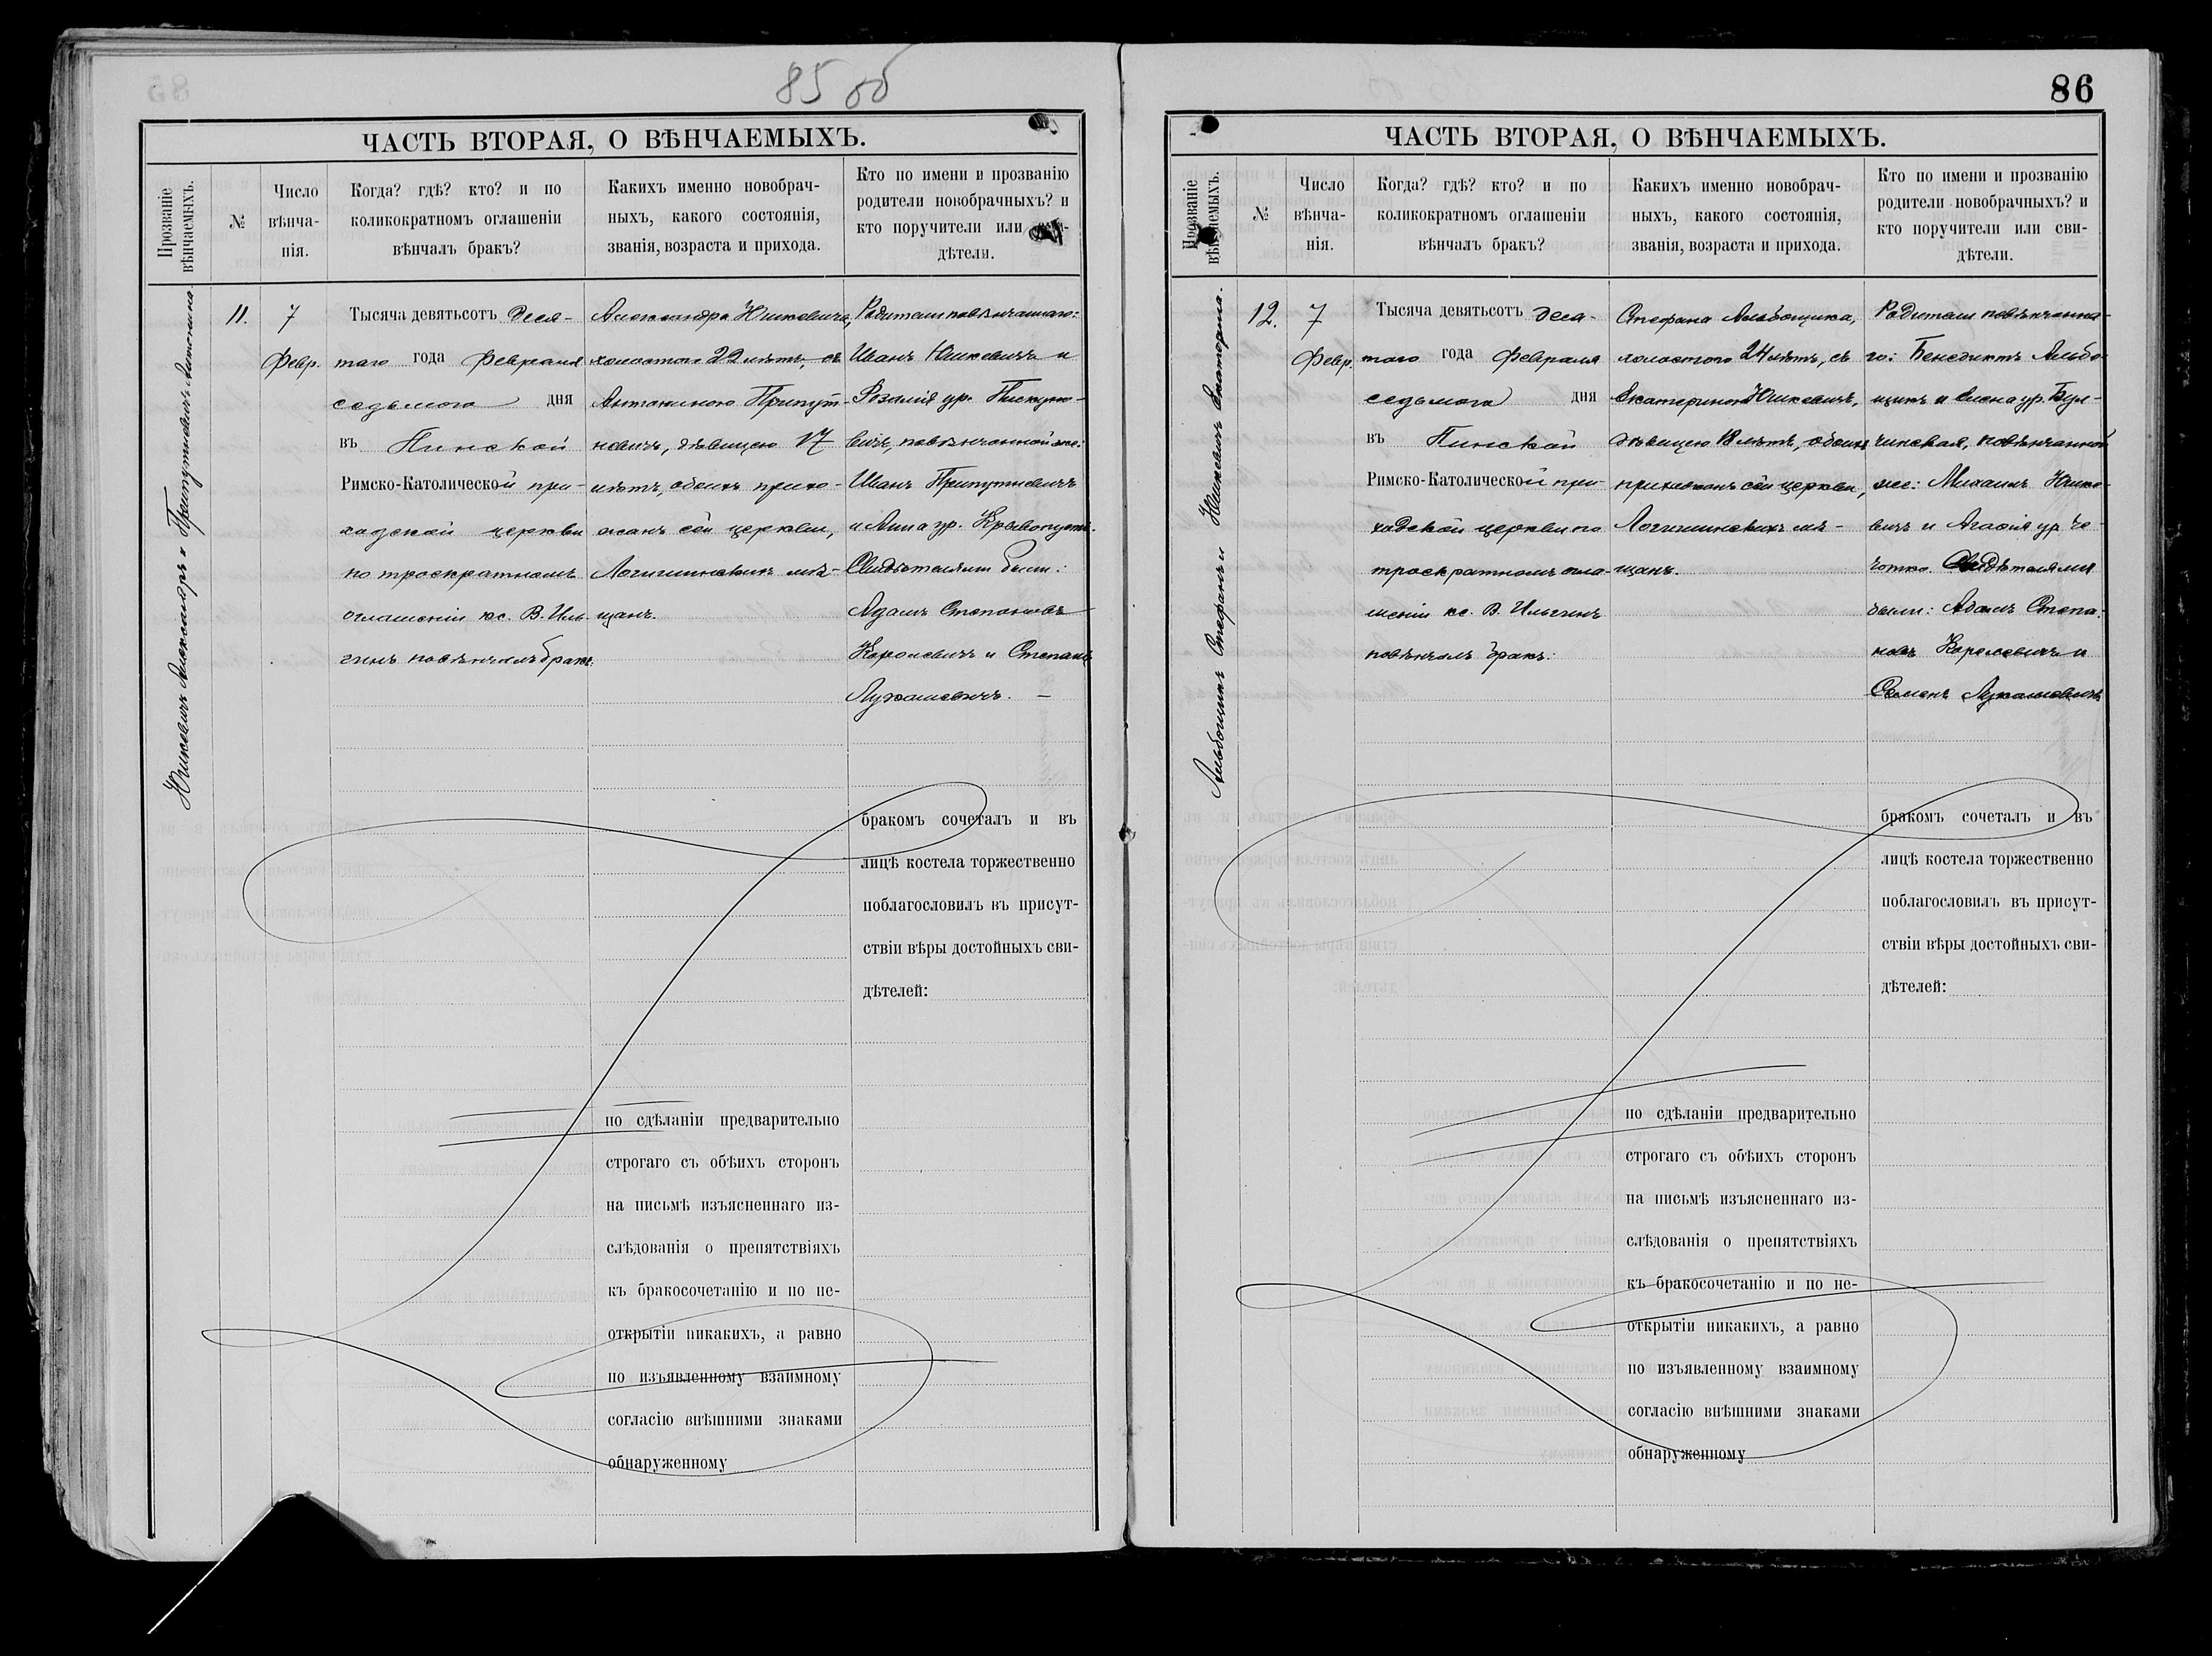 85 об
ЧАСТЬ ВТОРАЯ, О ВѢНЧАЕМЫХЪ.
Прозваніе вѣнчаемыхъ.
№
Число вѣнча-нія.
Когда? гдѣ? кто? и по
коликократномъ оглашеніи
вѣнчалъ бракъ?
Какихъ именно новобрач-
ныхъ, какого состоянія,
званія, возраста и прихода.
Кто по имени и прозванію
родители новобрачныхъ? и
кто поручители или
дѣтели.
Юшкевичъ Александръ и Припутневичъ Антонина.
11.
7
Февр.
Тысяча девятьсотъ деся-
таго года Февраля
седьмого дня
въ Пинской
Римско-Католической при-
ходской церкви
по троекратномъ
оглашеніи кс. В. Иль-
гинъ повѣнчалъ бракъ.
Александра Юшкевича,
холостого 22 лѣтъ, съ
Антониною Припут-
невичъ, дѣвицею 17
лѣтъ, обоихъ прихо-
жанъ сей церкви,
Логишинскихъ мѣ-
щанъ.
Родители повѣнчаннаго:
Иванъ Юшкевичъ и
Розалія ур. Пискуно-
вичъ, повѣнчанной же:
Иванъ Припутневичъ
и Анна ур. Кривопустъ.
Свидѣтелями были:
Адамъ Степановъ
Королевичъ и Степанъ
Лукашевичъ. —
бракомъ сочеталъ и въ
лицѣ костела торжественно
поблагословилъ въ присут-
ствіи вѣры достойныхъ сви-
дѣтелей:
по сдѣланіи предварительно
строгаго съ обѣихъ сторонъ
на письмѣ изъясненнаго из-
слѣдованія о препятствіяхъ
къ бракосочетанію и по не-
открытіи никакихъ, а равно
по изъявленному взаимному
согласію внѣшними знаками
обнаруженному
86
ЧАСТЬ ВТОРАЯ, О ВѢНЧАЕМЫХЪ.
Прозваніе вѣнчаемыхъ.
№
Число вѣнча-нія.
Когда? гдѣ? кто? и по
коликократномъ оглашеніи
вѣнчалъ бракъ?
Какихъ именно новобрач-
ныхъ, какого состоянія,
званія, возраста и прихода.
Кто по имени и прозванію
родители новобрачныхъ? и
кто поручители или сви-
дѣтели.
Альбощикъ Стефанъ и Юшкевичъ Екатерина.
12.
7
Февр.
Тысяча девятьсотъ деся-
таго года Февраля
седьмого дня
въ Пинской
Римско-Католической при-
ходской церкви по
троекратномъ огла-
шеніи кс. В. Ильгинъ
повѣнчалъ бракъ.
Стефана Альбощика,
холостого 24 лѣтъ, съ
Екатериною Юшкевичъ,
дѣвицею 18 лѣтъ, обоихъ
прихожанъ сей церкви,
Логишинскихъ мѣ-
щанъ.
Родители повѣнчанна-
го: Бенедиктъ Альбо-
щикъ и Елена ур. Бул-
чинская, повѣнчанной
же: Михаилъ Юшке-
вичъ и Агафія ур. Че-
чотко. Свидѣтелями
были: Адамъ Степа-
новъ Королевичъ и
Семенъ Лукашевичъ
бракомъ сочеталъ и въ
лицѣ костела торжественно
поблагословилъ въ присут-
ствіи вѣры достойныхъ сви-
дѣтелей:
по сдѣланіи предварительно
строгаго съ обѣихъ сторонъ
на письмѣ изъясненнаго из-
слѣдованія о препятствіяхъ
къ бракосочетанію и по не-
открытіи никакихъ, а равно
по изъявленному взаимному
согласію внѣшними знаками
обнаруженному